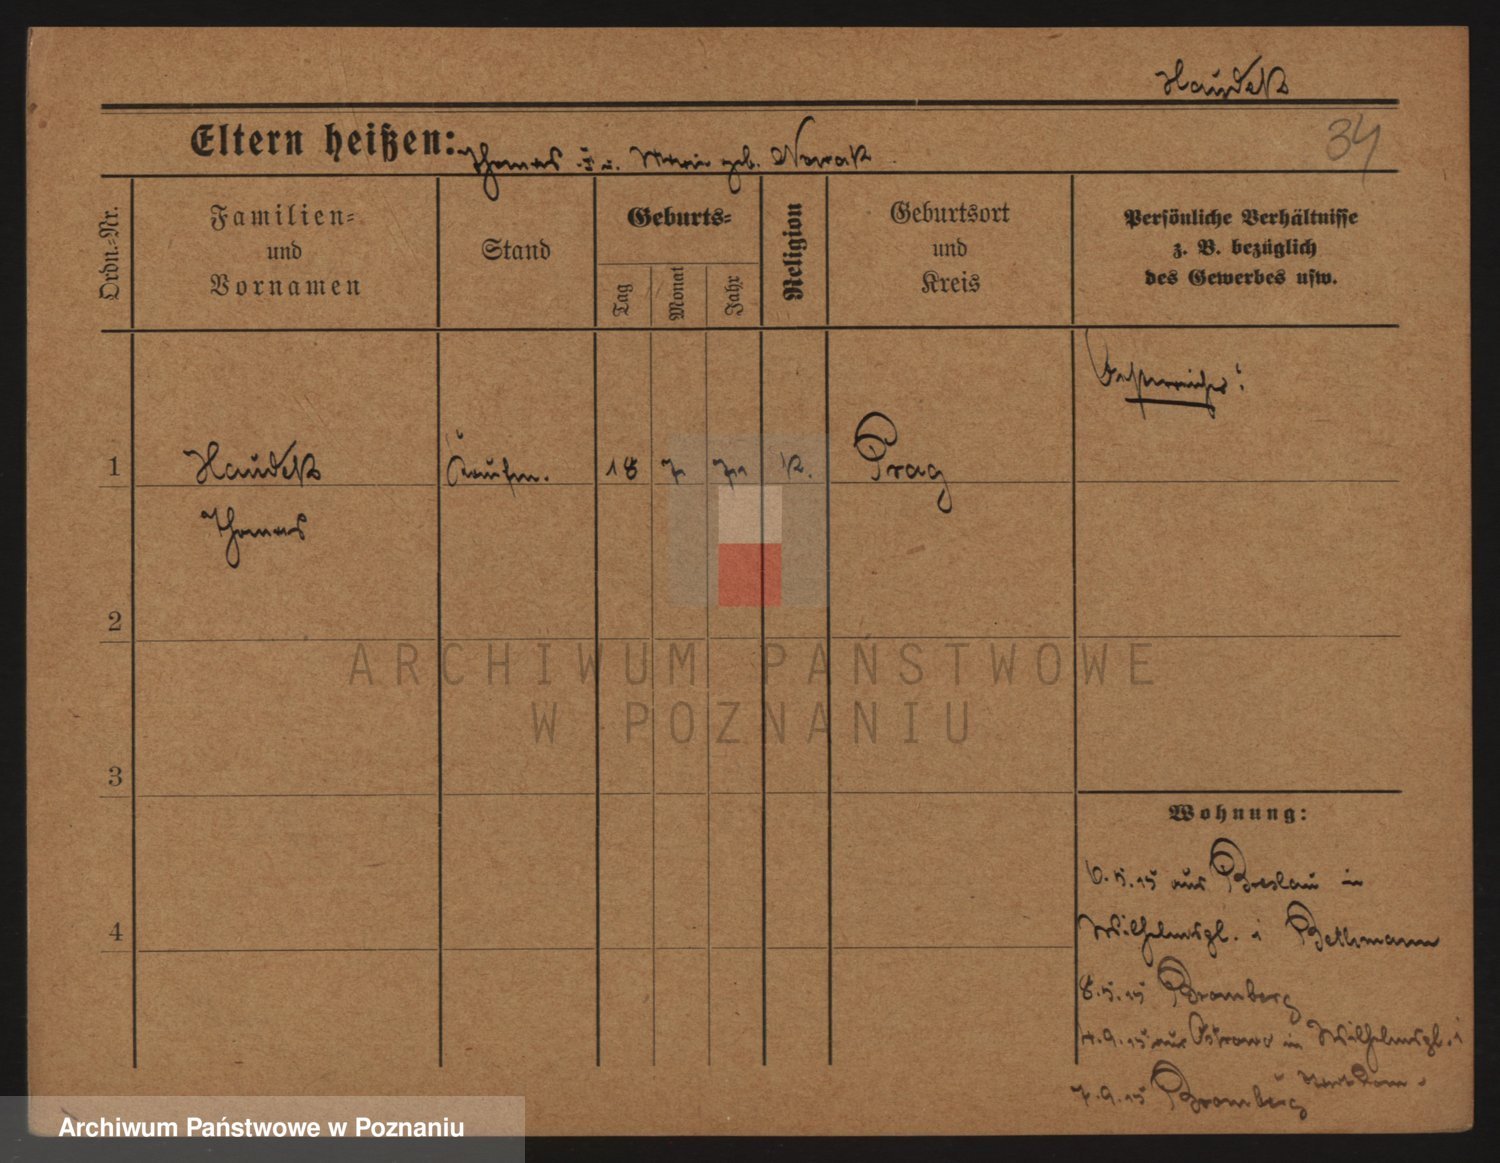 Haudek
34
Eltern heißen: Thomas u. Marie geb. Nowak
Ordn.-Nr.
Familien-
und
Vornamen
Stand
Geburts-
Tag
Monat
Jahr
Religion
Geburtsort
und
Kreis
Persönliche Verhältnisse
z. B. bezüglich
des Gewerbes usw.
Oesterreicher!
1 Haudek Kaufm. 18 7 K. Prag
Thomas
2
3
4
Wohnung:
6.5.15 aus Breslau in
Wilhelmspl. 1 Bethmann
8.5.15 Bromberg
4.9.15 aus Ostrowo in Wilhelmspl. 1
7.9.15 Bromberg
ARCHIWUM PAŃSTWOWE
W POZNANIU
Archiwum Państwowe w Poznaniu